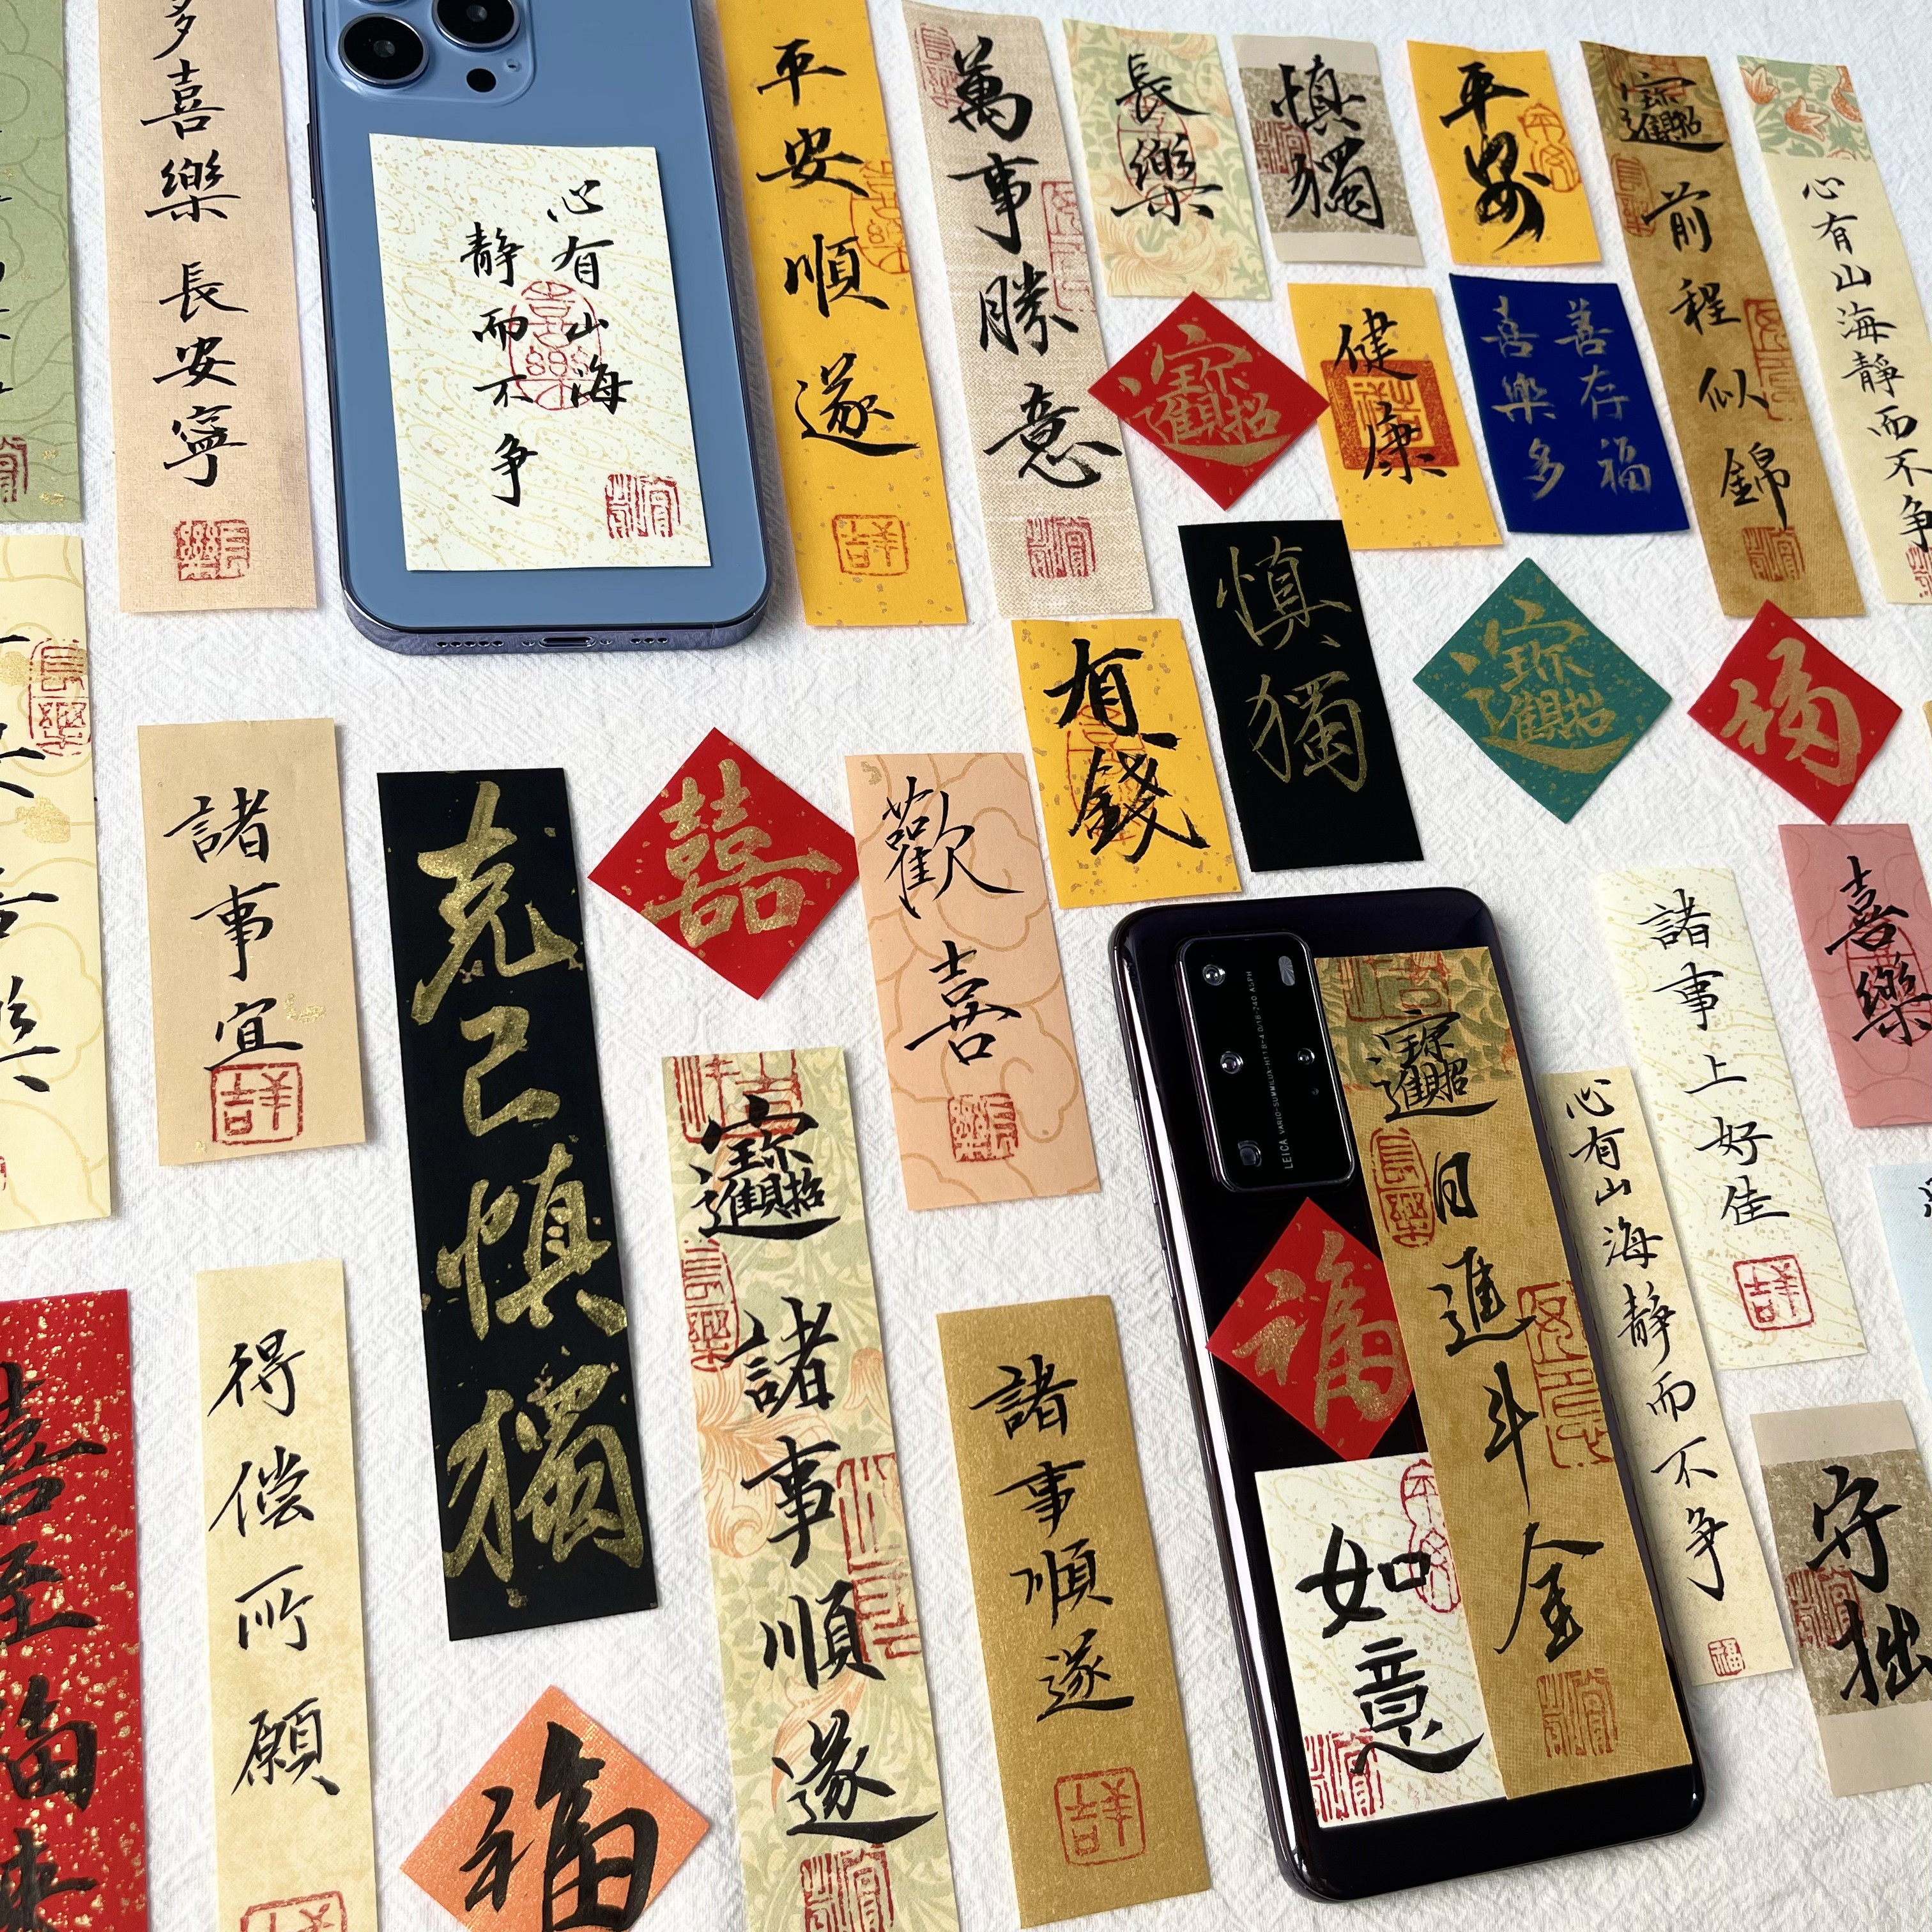 多喜樂長安寧
心有山海
静而不争
平安順遂
萬事勝意
長樂
慎獨
平安
招財進寶
前程似錦
心有山海静而不争
招財進寶
健康
善存福
喜樂多
慎獨
有錢
招財進寶
福
諸事宜
克己慎獨
囍
歡喜
喜樂
諸事上好佳
LEICA VARIO-SUMMILUX-H 1:1.8-4.0/18-240 ASPH
招財進寶
日進斗金
福
如意
心有山海静而不争
守拙
招財進寶
諸事順遂
諸事順遂
得偿所願
喜至福来
福